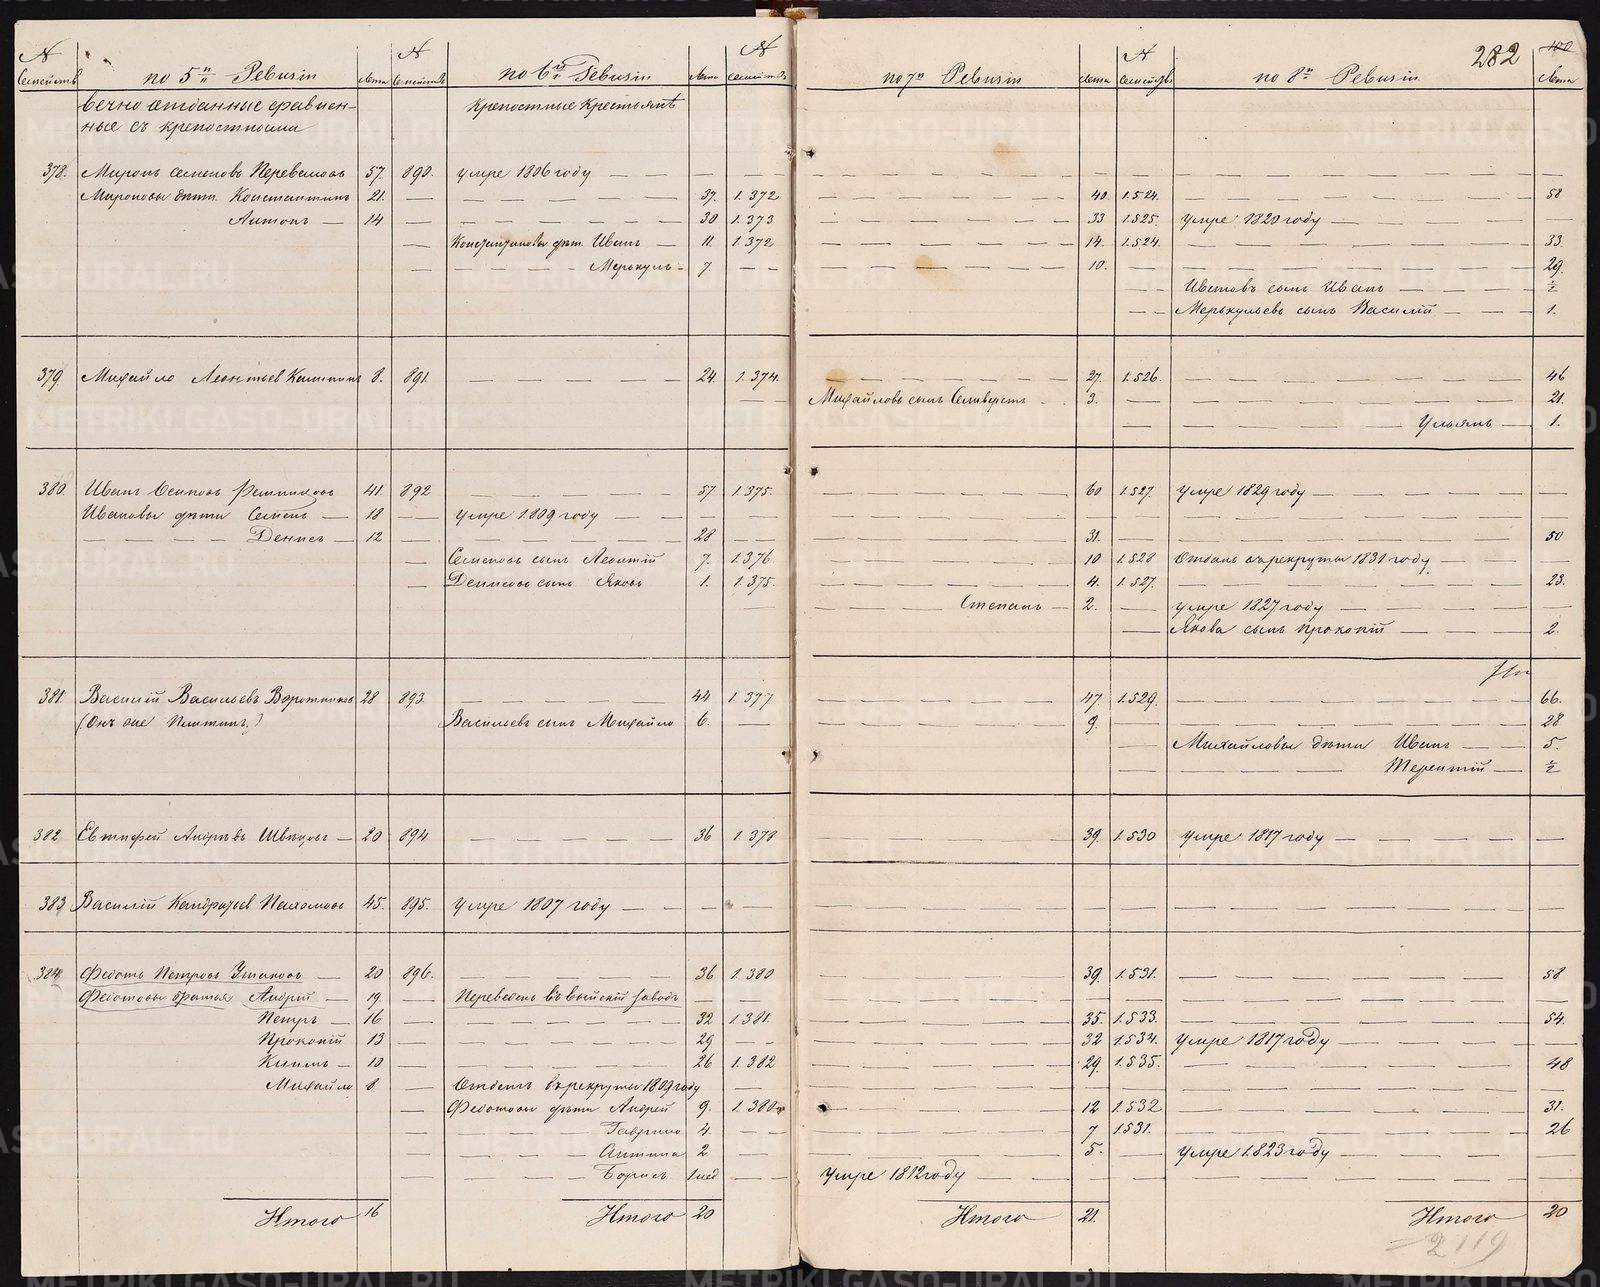 282 100
№ Семействъ по 5й Ревизiи Лѣта № Семействъ по 6й Ревизiи Лѣта № Семействъ по 7й Ревизiи Лѣта № Семействъ по 8й Ревизiи Лѣта
вечно отданные сравнен- крепостные крестьянѣ
ные съ крепостными
378. Миронъ Семеновъ 57 890. умре 1806 году
Мироновы дѣти Константинъ 21. 37. 1.372 40. 1.524. 58
Антонъ 14 30 1.373 33 1.525. умре 1820 году
Константиновы дѣт. Иванъ 11. 1.372 14. 1.524. 33.
Меркулъ 7. 10. 29.
Ивановъ сынъ Иванъ ½
Меркульевъ сынъ Василiй 1.
379. Михайло Леонтьев Калининъ 8. 891. 24. 1.374. 27. 1.526. 46
Михайловъ сынъ Селиверстъ 3. 21.
Ульянъ 1.
380. Иванъ Осиповъ Решниковъ 41. 892 57 1.375. 60 1.527. умре 1829 году
Ивановы дѣти Семенъ 18 умре 1809 году
Денисъ 12 28 31. 50
Семеновъ сынъ Леонтiй 7. 1.376 10 1.528 Отданъ въ рекруты 1831 году
Денисовъ сынъ Яковъ 1. 1.375. 4. 1.527. 23.
Степанъ 2. умре 1827 году
Якова сынъ Прокопiй 2.
381. Василiй Васильевъ Воротниковъ 28 893. 44 1.377 47. 1.529. 66.
(Онъ же ) Васильевъ сынъ Михайло 6. 9. 28
Михайловы дѣти Иванъ 5.
Терентiй ½
382. Евтифей Андрѣевъ Швецовъ 20 894 36 1.378 39. 1.530 умре 1817 году
383. Василiй Кондратьев Пахомовъ 45. 895. умре 1807 году
384. Федотъ Петровъ Ушаковъ 20 896. 36 1.380 39. 1.531. 58
Федотовы братья Андрей 19. Переведенъ въ Выйскiй заводъ
Петръ 16 32 1.381. 35. 1.533. 54.
Прокопiй 13 29 32 1.534. умре 1817 году
Кипль 10 26 1.382 29. 1.535. 48
Михайло 8 Отданъ в рекруты 1809 году
Федотовы дѣти Андрей 9. 1.380 12 1.532 31.
Гаврило 4. 7 1.531. 26
Антипа 2 5. умре 1.823 году
Борисъ 1 нед умре 1812 году
Итого 16 Итого 20 Итого 21. Итого 20
2119
METRIKI.GASO-URAL.RU